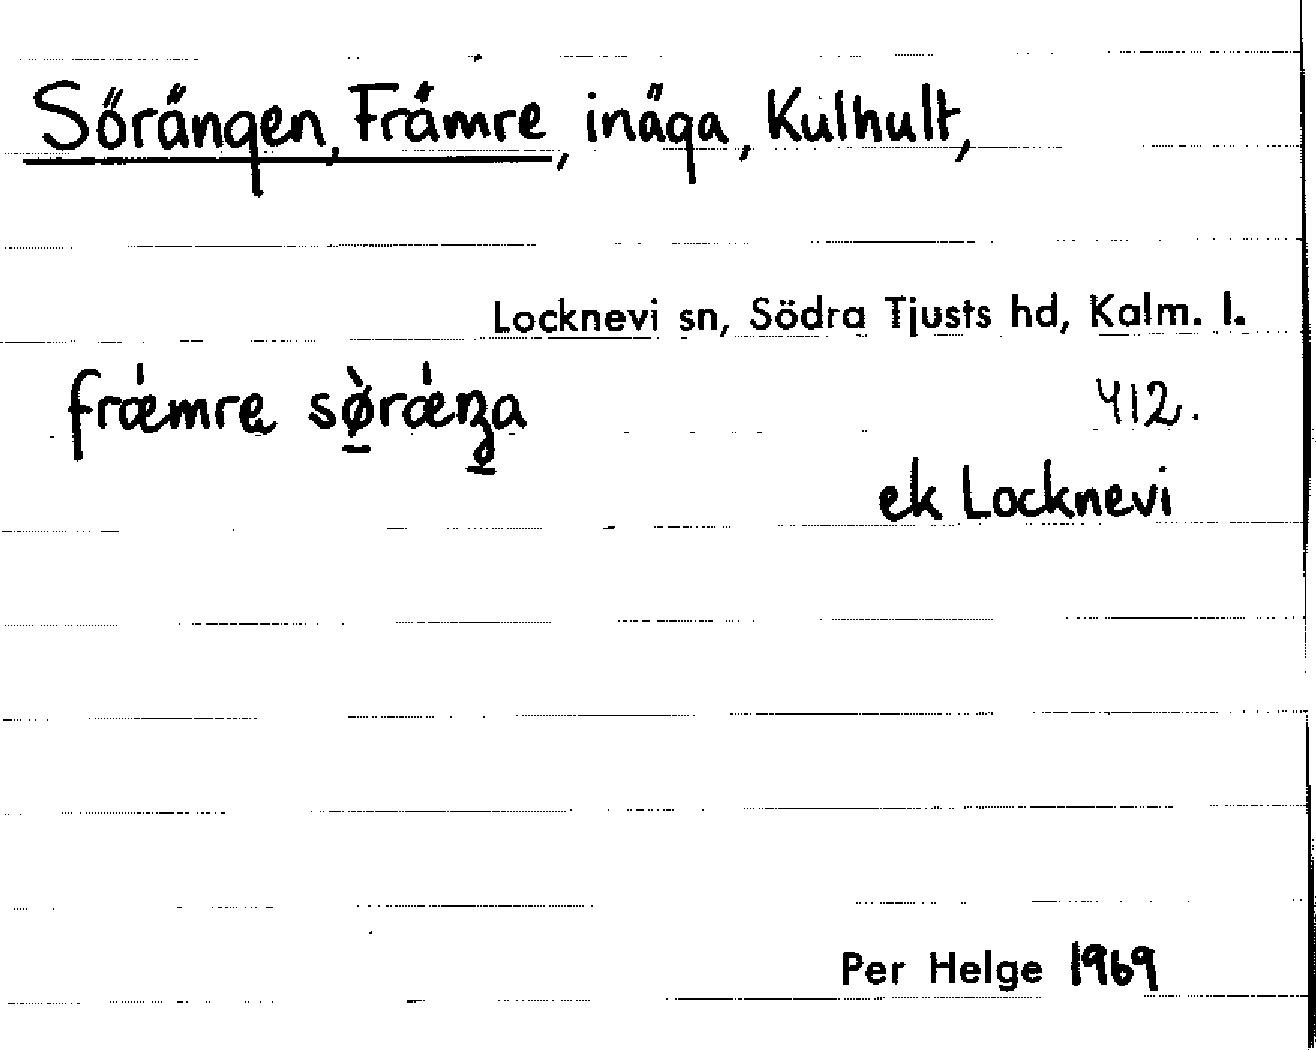 Sörängen, Främre, inäga, Kulhult,
Locknevi sn, Södra Tjusts hd, Kalm. l.
frǽmrə sø̠̀rǽŋa 412.
ek Locknevi
Per Helge 1969